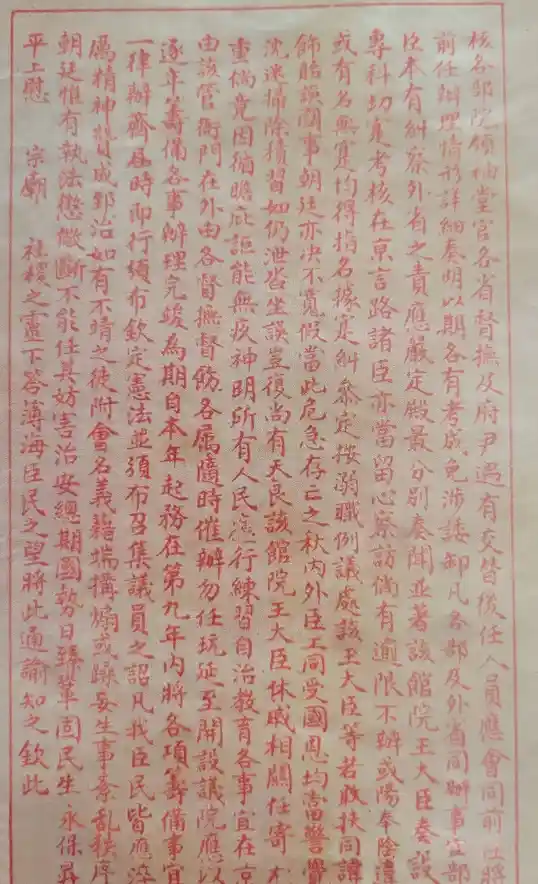 核各部院領袖堂官各省督撫及府尹遇有交替後任人員應會同前任將
前任辦理情形詳細奏明以期各有考成免涉諉卸凡各部及外省同辦事宜部
臣本有糾察外省之責應嚴定殿最分別奏聞並著該館院王大臣奏設
專科切實考核在京言路諸臣亦當留心察訪倘有逾限不辦或陽奉陰違
或有名無實均得指名據實糾參定按溺職例議處該王大臣等若敢扶同諱
飾貽誤國事朝廷亦決不寬假當此危急存亡之秋內外臣工同受國恩均當警覺
沈迷掃除積習如仍泄沓坐誤豈復尚有天良該館院王大臣休戚相關任寄尤
重倘竟因循瞻庇詎能無疚神明所有人民應行練習自治教育各事宜在京
由該管衙門在外由各督撫督飭各屬隨時催辦勿任玩延至開設議院應以
逐年籌備各事辦理完竣為期自本年起務在第九年內將各項籌備事宜
一律辦齊屆時即行頒布欽定憲法並頒布召集議員之詔凡我臣民皆應淬
厲精神贊成郅治如有不靖之徒附會名義藉端搆煽或躁妄生事紊亂秩序
朝廷惟有執法懲儆斷不能任其妨害治安總期國勢日臻鞏固民生 永保昇
平上慰 宗廟 社稷之靈下答薄海臣民之望將此通諭知之欽此